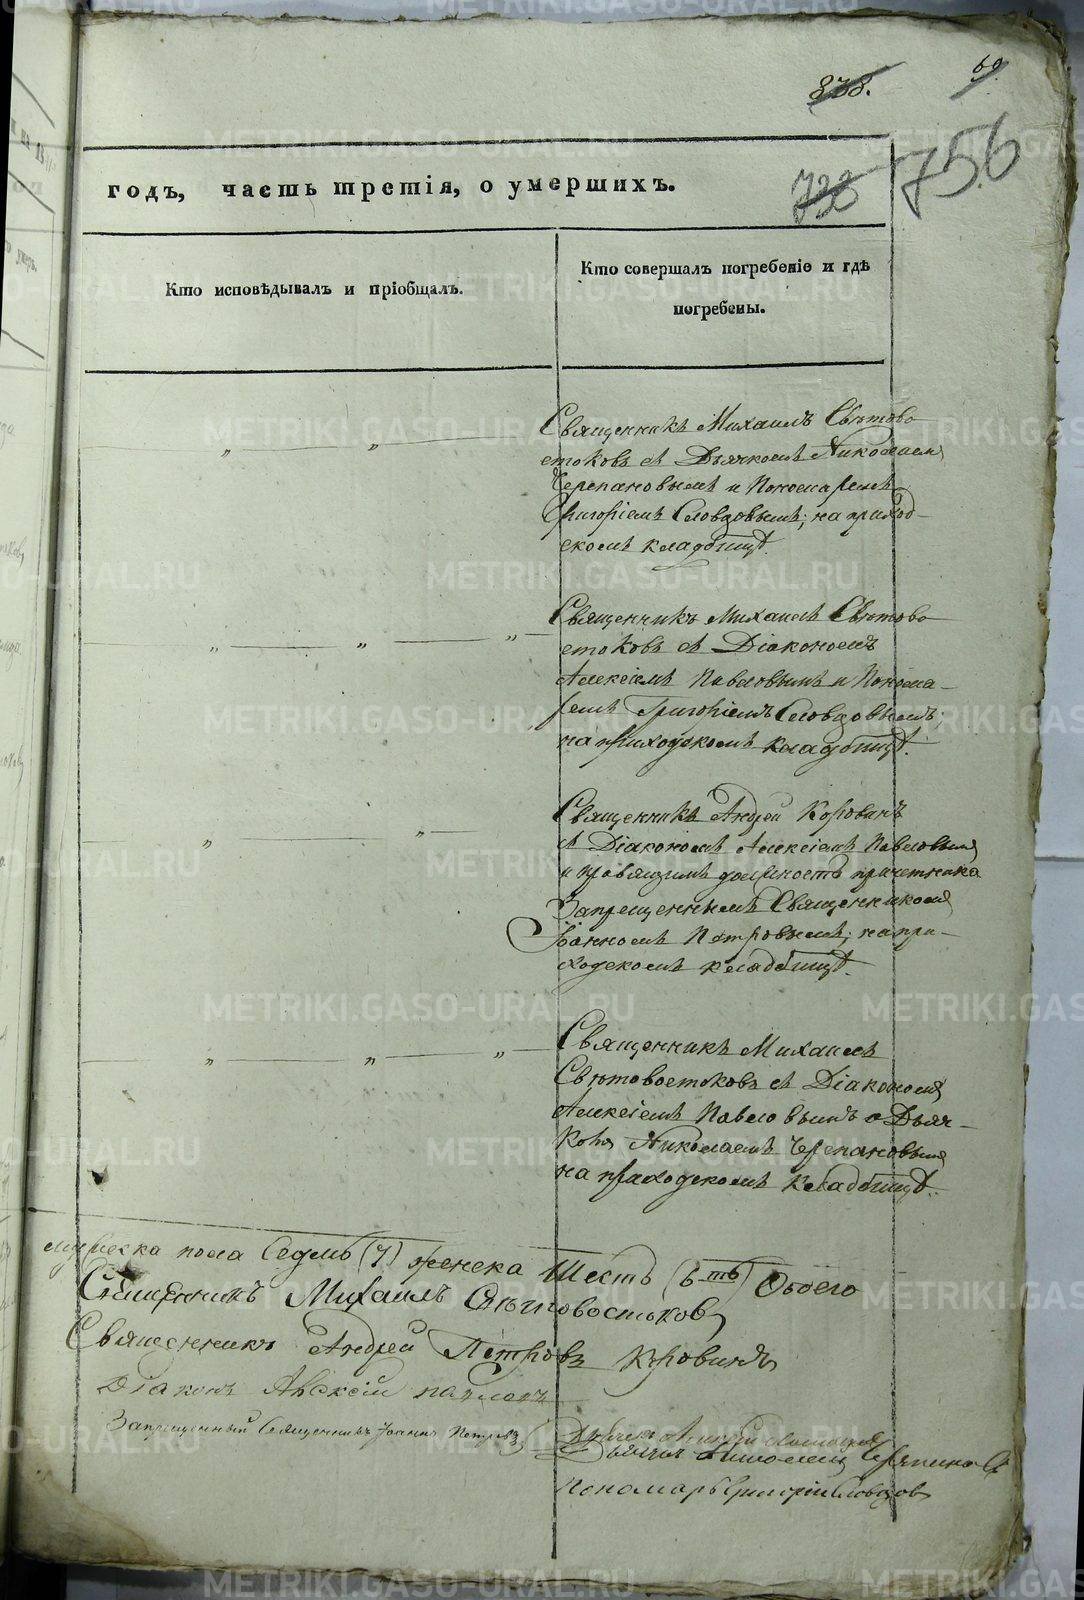 838.
69.
756
733
годъ, часть третія, о умершихъ.
Кто исповѣдывалъ и пріобщалъ.
Кто совершалъ погребеніе и гдѣ
погребены.
Священникъ Михаилъ Свѣтово
стоковъ съ Дьячкомъ Николаемъ
Черепановымъ и Пономаремъ
Григоріемъ Словцовымъ; на приход-
скомъ кладбищѣ.
Священникъ Михаилъ Свѣтово
стоковъ съ Діакономъ
Алексіемъ Павловымъ и Понома-
ремъ Григоріемъ Словцовымъ;
на приходскомъ кладбищѣ.
Священникъ Андрей Коровинъ
съ Діакономъ Алексіемъ Павловымъ
и правящимъ должность причетника
Запрещеннымъ Священникомъ
Іоанномъ Петровымъ; на при-
ходскомъ кладбищѣ.
Священникъ Михаилъ
Свѣтовостоковъ съ Діакономъ
Алексіемъ Павловымъ и Дьяч-
комъ Николаемъ Черепановымъ
на приходскомъ кладбищѣ.
мужеска пола Седмь (7) женска Шесть (6-ть) Обоего
Священникъ Михаилъ Свѣтовостоковъ
Священникъ Андрей Петровъ Коровинъ
Діаконъ Алексій Павловъ
Запрещенный Священникъ Іоаннъ Петровъ
Дьячекъ
Дьячекъ Николай Черепановъ
Пономарь Григорій Словцовъ
METRIKI.GASO-URAL.RU